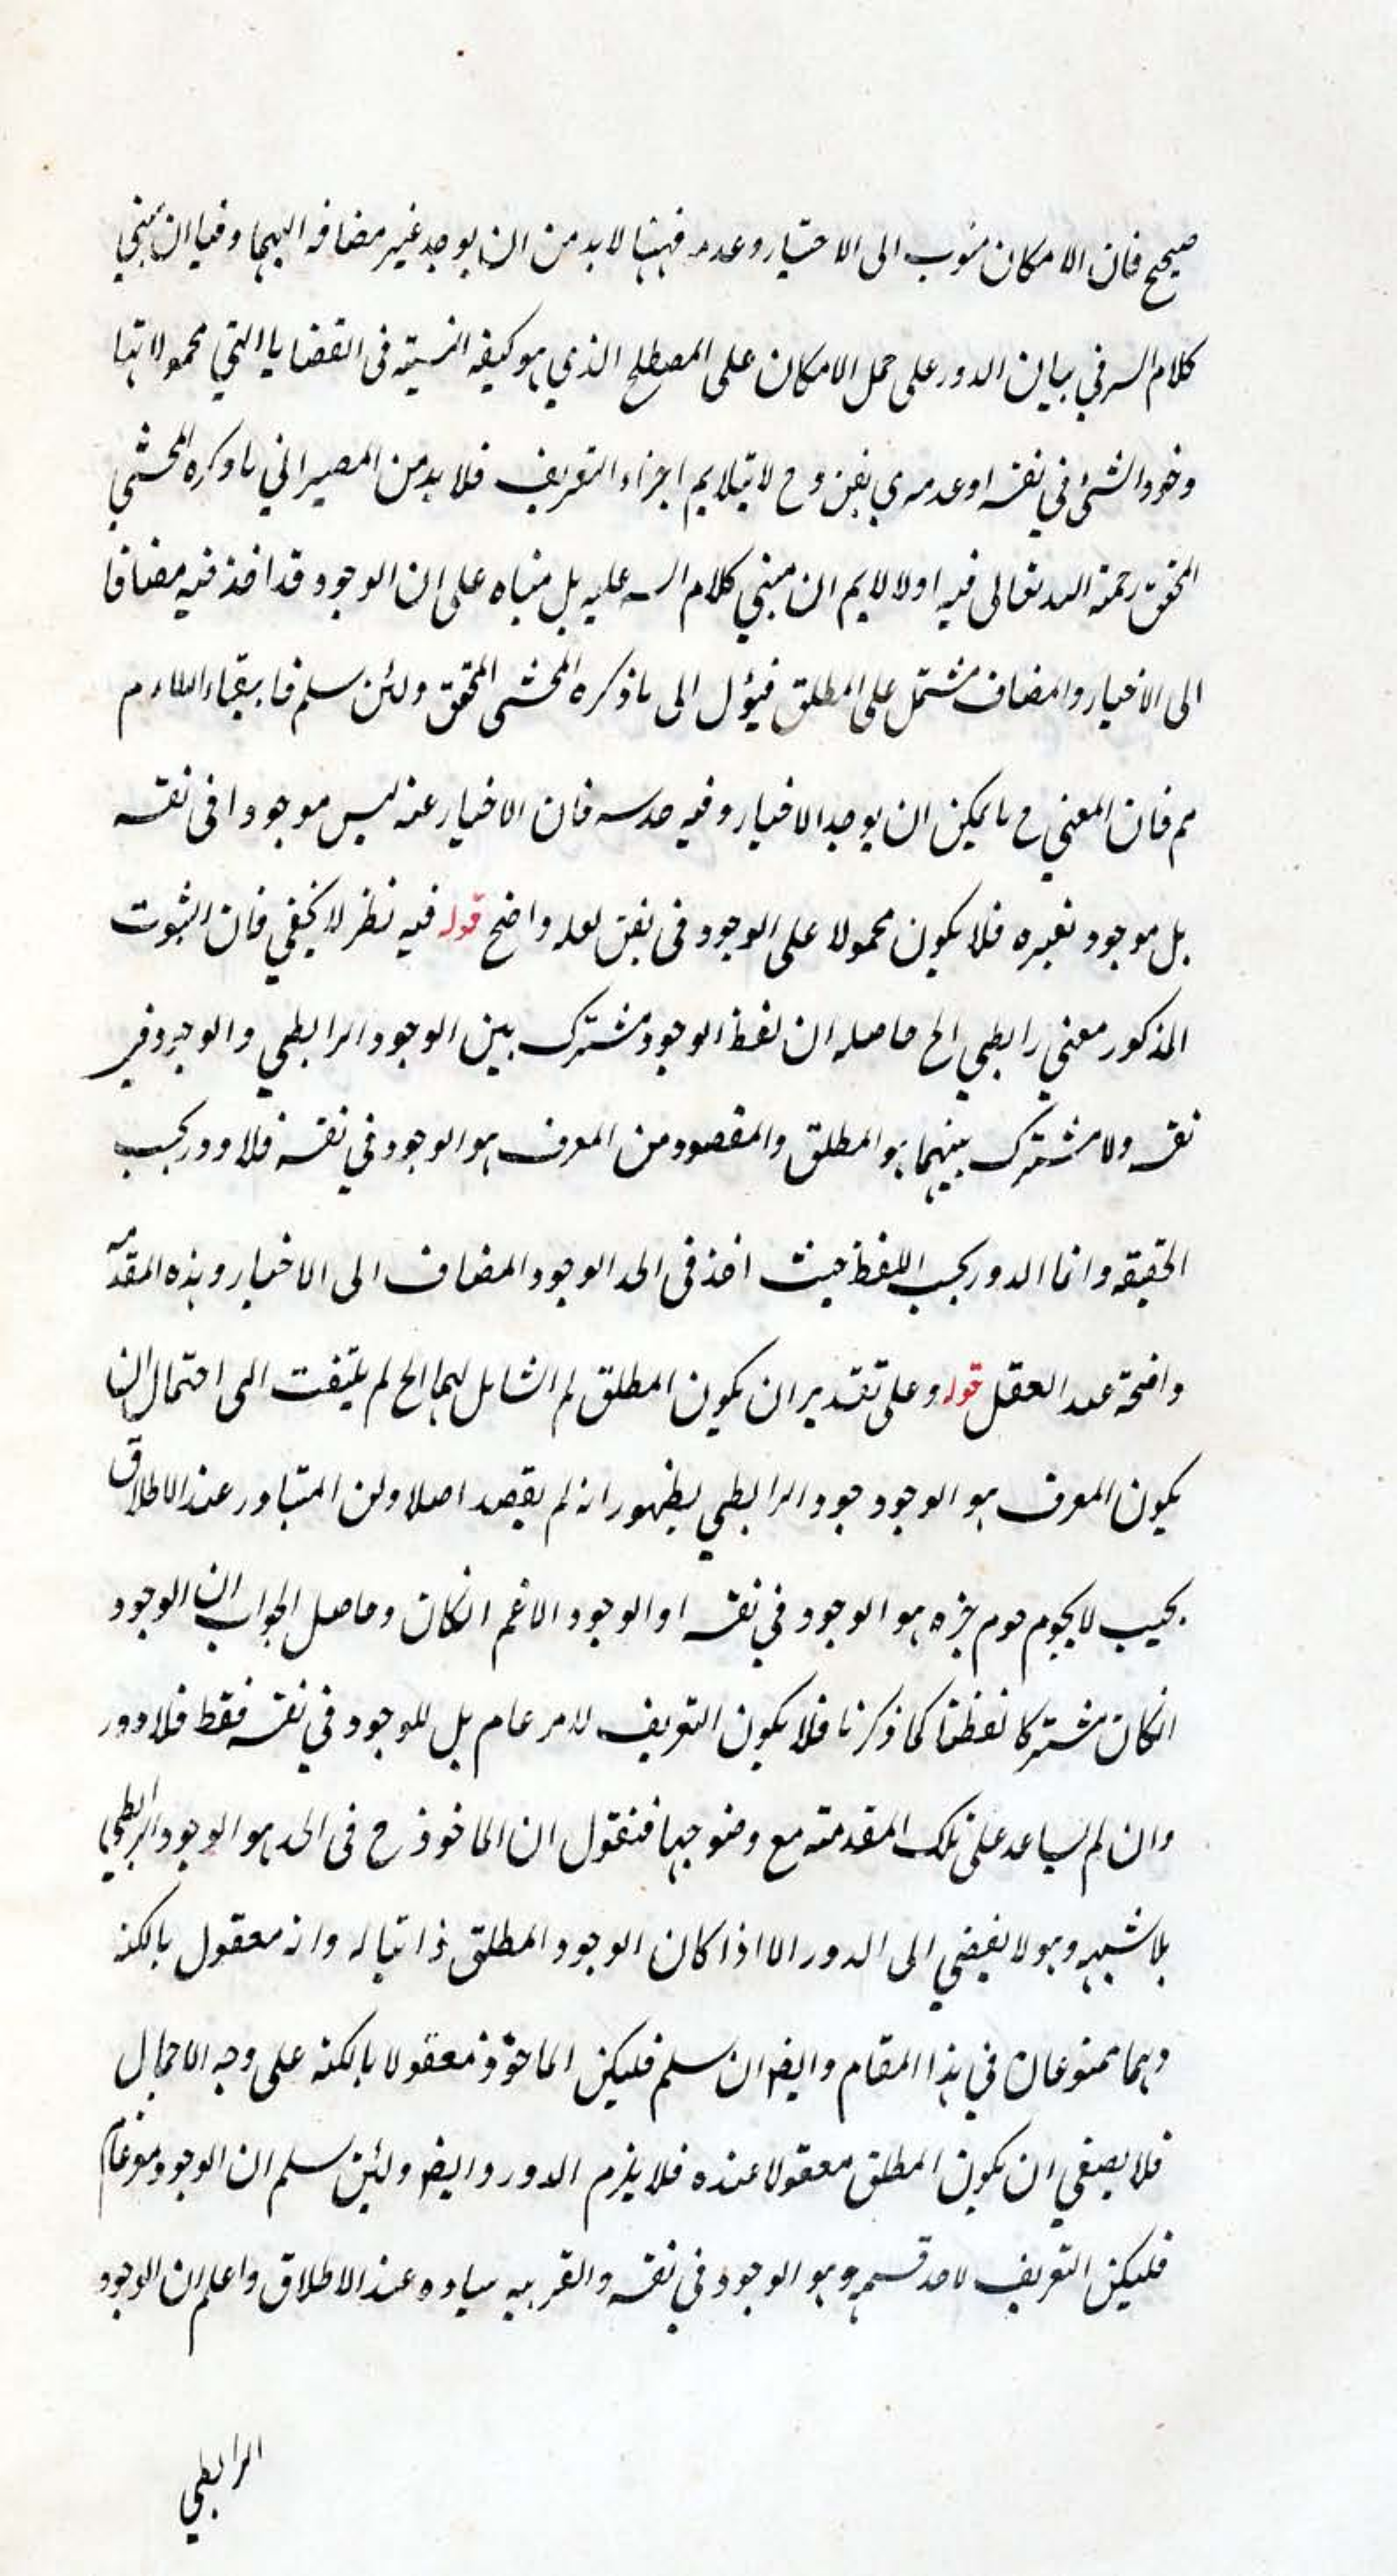 صحيح فان الامكان منوب الى الاختيار وعدمه فههنا لابد من ان يوجد غير مضافه اليهما وفيا ان مبني
كلام السر في بيان الدور على حمل الامكان على المصطلح الذي هو كيفه النسبته فى القضايا التي محمولاتها
وخود الشئ في نفسه او عدمه في نفن وح لا تيلايم اجزاء التعريف فلا بد من المصير الي ما ذكره المحشي
المحقق رحمة الله تعالى فيه اولا لا يم ان مبني كلام السه عليه بل مبناه على ان الوجود قد اخذ فيه مضافا
الى الاخبار والمضاف مشتمل على المطلق فيؤل الى ما ذكره المحشى المحقق ولئن سلم فا بقاء اللازم
مم فان المعني ح ما يمكن ان يوجد الاخبار وفيه حدسه فان الاخبار عنه ليس موجودا فى نفسه
بل موجود لغيره فلا يكون محمولا على الوجود فى نفن لعله واضح قوله فيه نظر لا يخفي فان الثبوت
المذكور معني رابطي الخ حاصله ان لفظ الوجود مشترك بين الوجود الرابطي والوجود في
نفسه ولا مشترك بينهما هو المطلق والمقصود من المعرف هو الوجود في نفسه فلا دور بحسب
الحقيقه وانما الدور بحسب اللفظ حيث اخذ فى الحد الوجود المضاف الى الاخبار وهذه المقدمه
واضحة عند العقل قوله وعلى تقدير ان يكون المطلق لم الشامل لهما الخ لم يلتفت الى احتمال ان
يكون المعرف هو الوجود جود الرابطي لظهور انه لم يقصد اصلا ولن المتبادر عند الاطلاق
بحيب لا يحوم حوم غيره هو الوجود في نفسه او الوجود الاعم انكان وحاصل الجواب ان الوجود
انكان مشتركا لفظيا كما ذكرنا فلا يكون التعريف لامر عام بل للوجود في نفسه فقط فلا دور
وان لم يساعد على تلك المقدمته مع وضوحها فنقول ان الماخوذ ح فى الحد هو الوجود الرابطي
بلا شبهه وهو لا يفضي الى الدور الا اذا كان الوجود المطلق ذاتيا له وانه معقول بالكنه
وهما ممنوعان في هذا المقام وايضا ان سلم فليكن الماخوذ معقولا بالكنه على وجه الاجمال
فلا يصغي ان يكون المطلق معقولا عنده فلا يلزم الدور وايضا ولئن سلم ان الوجود موعام
فليكن التعريف لاحد قسميه وهو الوجود في نفسه والقرينه تبادره عند الاطلاق واعلم ان الوجود
الرابطي